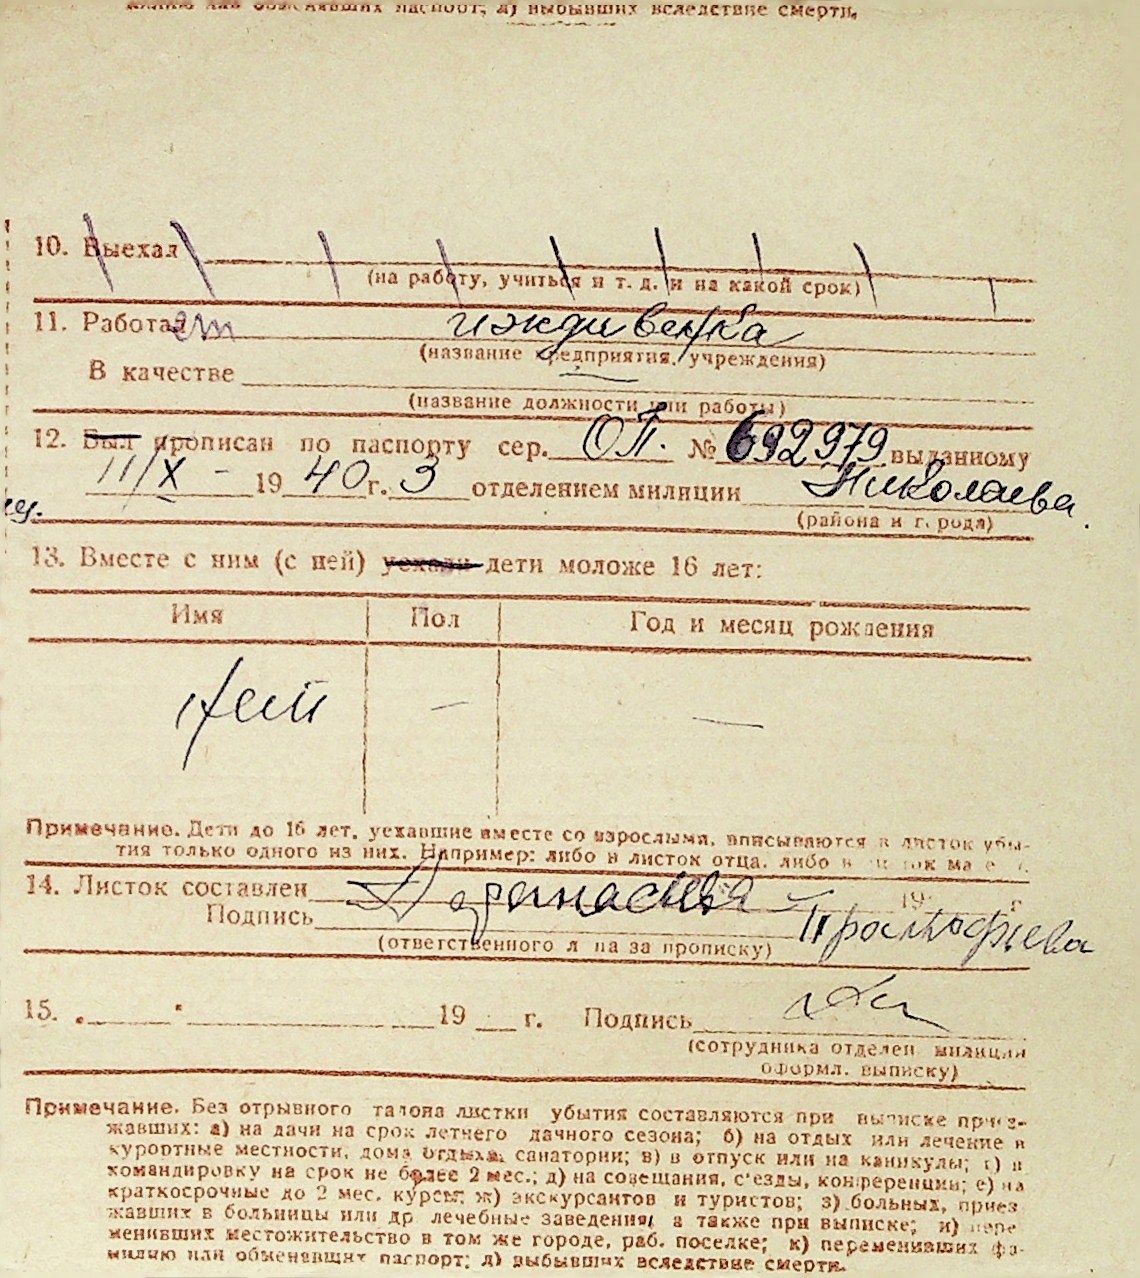 менивших обменявших паспорт; л) выбывших вследствие смерти.
10. Выехал
(на работу, учиться и т. д. и на какой срок)
11. Работает иждивенка
(название предприятия, учреждения)
В качестве —
(название должности или работы)
12. Был прописан по паспорту сер. ОП. № 692979 выданному
11/X - 1940 г. 3 отделением милиции Николаева
(района и города)
13. Вместе с ним (с ней) уехали дети моложе 16 лет:
Имя Пол Год и месяц рождения
нет — —
Примечание. Дети до 16 лет, уехавшие вместе со взрослыми, вписываются в листок убы-
тия только одного из них. Например: либо в листок отца, либо в листок матери.
14. Листок составлен 19 г.
Подпись Прокофьева
(ответственного лица за прописку)
15. " " 19 г. Подпись
(сотрудника отделен. милиции
оформл. выписку)
Примечание. Без отрывного талона листки убытия составляются при выписке приез-
жавших: а) на дачи на срок летнего дачного сезона; б) на отдых или лечение в
курортные местности, дома отдыха, санатории; в) в отпуск или на каникулы; г) в
командировку на срок не более 2 мес.; д) на совещания, с'езды, конференции; е) на
краткосрочные до 2 мес. курсы; ж) экскурсантов и туристов; з) больных, приез-
жавших в больницы или др лечебные заведения, а также при выписке; и) пере-
менивших местожительство в том же городе, раб. поселке; к) переменивших фа-
милию или обменявших паспорт; л) выбывших вследствие смерти.